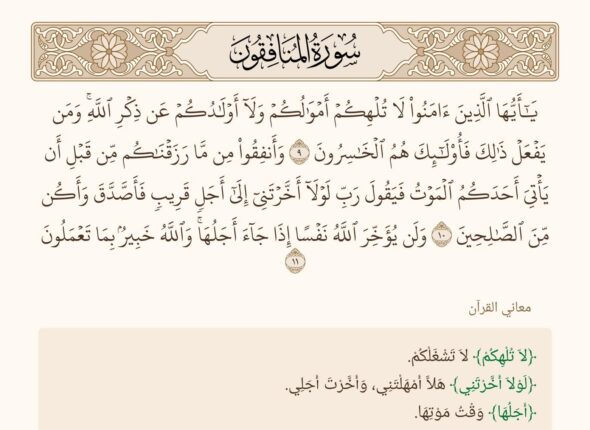 سُورَةُ المُنَافِقُونَ
يَـٰٓأَيُّهَا ٱلَّذِينَ ءَامَنُوا۟ لَا تُلْهِكُمْ أَمْوَٰلُكُمْ وَلَآ أَوْلَـٰدُكُمْ عَن ذِكْرِ ٱللَّهِ ۚ وَمَن
يَفْعَلْ ذَٰلِكَ فَأُو۟لَـٰٓئِكَ هُمُ ٱلْخَـٰسِرُونَ ٩ وَأَنفِقُوا۟ مِن مَّا رَزَقْنَـٰكُم مِّن قَبْلِ أَن
يَأْتِىَ أَحَدَكُمُ ٱلْمَوْتُ فَيَقُولَ رَبِّ لَوْلَآ أَخَّرْتَنِىٓ إِلَىٰٓ أَجَلٍ قَرِيبٍ فَأَصَّدَّقَ وَأَكُن
مِّنَ ٱلصَّـٰلِحِينَ ١٠ وَلَن يُؤَخِّرَ ٱللَّهُ نَفْسًا إِذَا جَآءَ أَجَلُهَا ۚ وَٱللَّهُ خَبِيرٌۢ بِمَا تَعْمَلُونَ
١١
معاني القرآن
﴿لَا تُلْهِكُمْ﴾ لَا تَشْغَلْكُمْ.
﴿لَوْلَا أَخَّرْتَنِي﴾ هَلاَّ أَمْهَلْتَنِي، وَأَخَّرْتَ أَجَلِي.
﴿أَجَلُهَا﴾ وَقْتُ مَوْتِهَا.